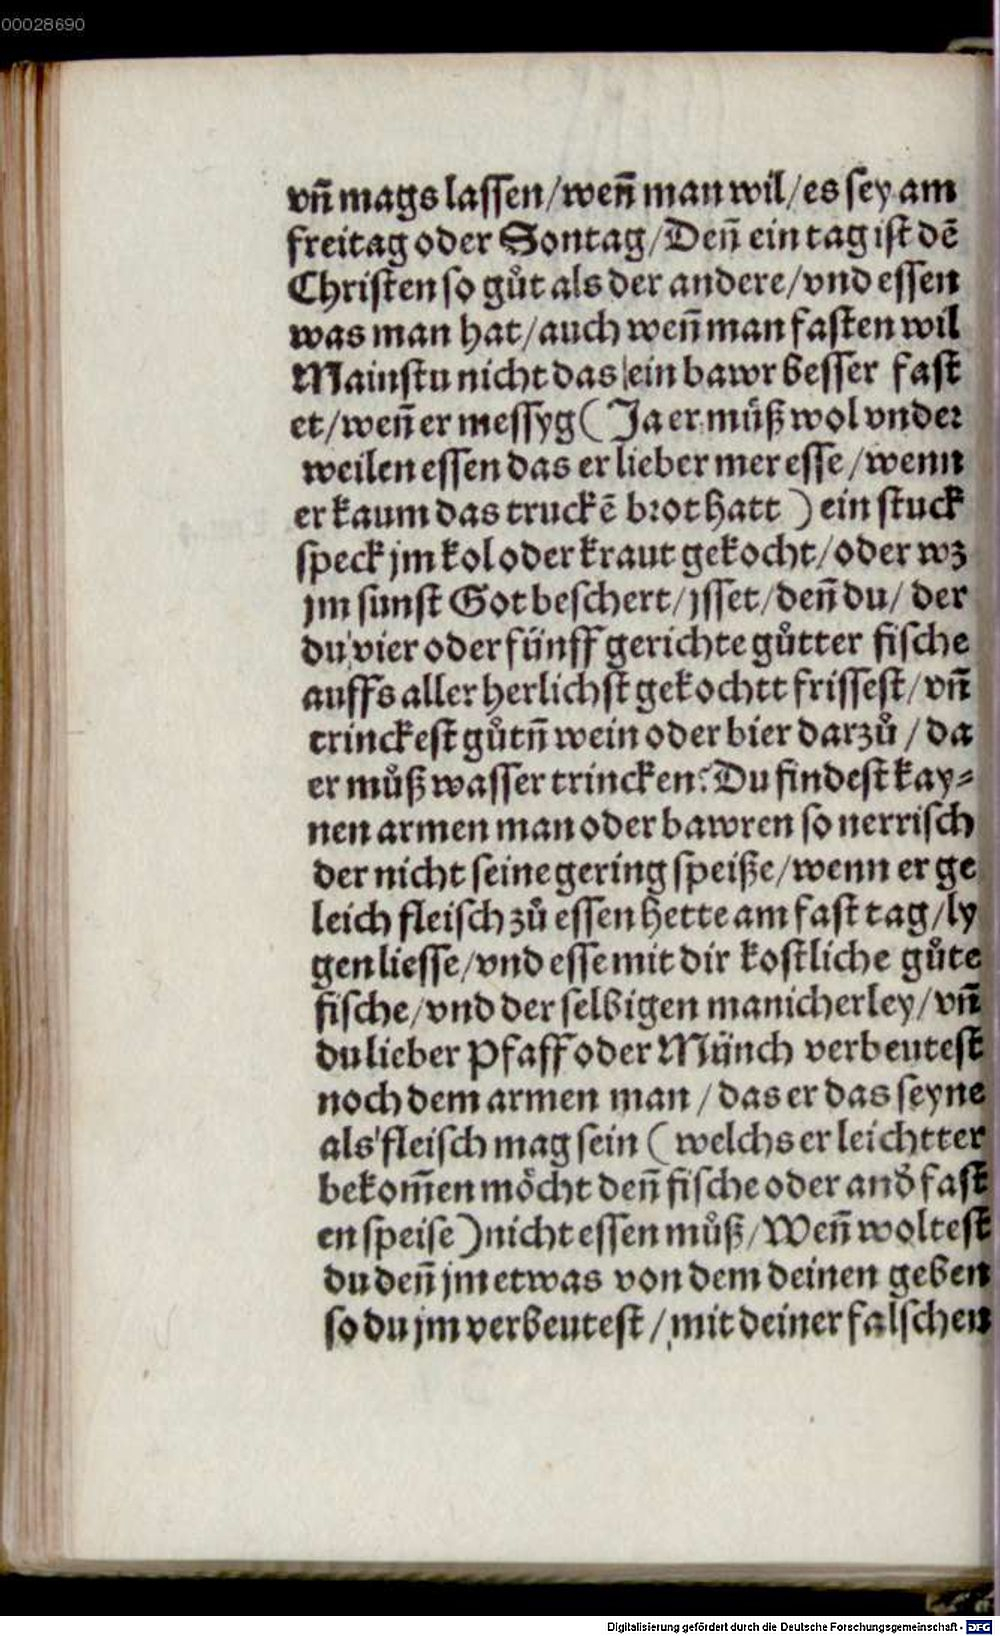 00028690
vñ mags laſſen/weñ man wil/es ſey am
freitag oder Sontag/Deñ ein tag iſt dē
Chriſten ſo gůt als der andere/vnd eſſen
was man hat/auch weñ man faſten wil
Mainſtu nicht das ein bawr beſſer faſt
et/weñ er meſſyg (Ja er můß wol vnder
weilen eſſen das er lieber mer eſſe/wenn
er kaum das truckē brot hatt ) ein ſtuck
ſpeck jm kol oder kraut gekocht/oder wz
jm ſunſt Got beſchert/jſſet/deñ du/ der
du vier oder fünff gerichte gůtter fiſche
auffs aller herlichſt gekochtt friſſeſt/vñ
trinckeſt gůtñ wein oder bier darzů/da
er můß waſſer trincken? Du findeſt kay⸗
nen armen man oder bawren ſo nerriſch
der nicht ſeine gering ſpeiße/wenn er ge
leich fleiſch zů eſſen hette am faſt tag/ly
gen lieſſe/vnd eſſe mit dir koſtliche gůte
fiſche/vnd der ſelbigen manicherley/vñ
du lieber Pfaff oder Münch verbeuteſt
noch dem armen man/das er das ſeyne
als fleiſch mag ſein ( welchs er leichtter
bekom̄en möcht deñ fiſche oder and̕ faſt
en ſpeiſe ) nicht eſſen můß/Weñ wolteſt
du deñ jm etwas von dem deinen geben
ſo du jm verbeuteſt/mit deiner falſchen
Digitalisierung gefördert durch die Deutsche Forschungsgemeinschaft - DFG